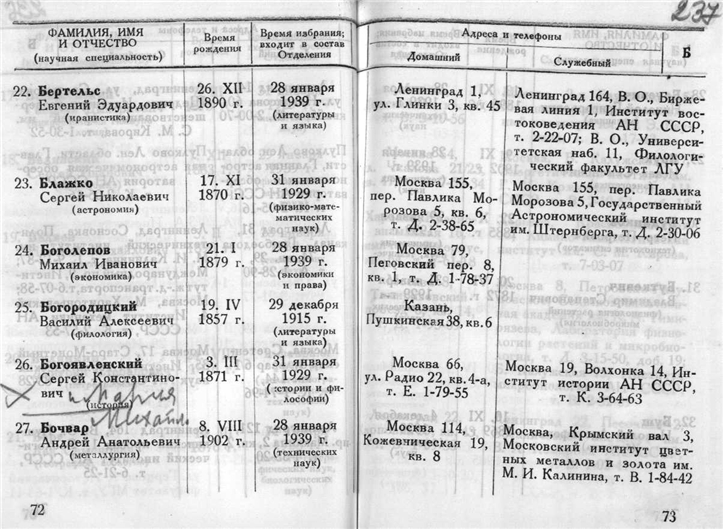 237
ФАМИЛИЯ, ИМЯ
И ОТЧЕСТВО
(научная специальность)
Время
рождения
Время избрания;
входит в состав
Отделения
22. Бертельс
Евгений Эдуардович
(иранистика)
26. XII
1890 г.
28 января
1939 г.
(литературы
и языка)
23. Блажко
Сергей Николаевич
(астрономия)
17. XI
1870 г.
31 января
1929 г.
(физико-мате-
матических
наук)
24. Боголепов
Михаил Иванович
(экономика)
21. I
1879 г.
28 января
1939 г.
(экономики
и права)
25. Богородицкий
Василий Алексеевич
(филология)
19. IV
1857 г.
29 декабря
1915 г.
(литературы
и языка)
26. Богоявленский
Сергей Константино-
вич
(история)
Мария
Михайл
3. III
1871 г.
31 января
1929 г.
(истории и фи-
лософии)
27. Бочвар
Андрей Анатольевич
(металлургия)
8. VIII
1902 г.
28 января
1939 г.
(технических
наук)
72
Адреса и телефоны
Домашний
Служебный
Б
Ленинград 1,
ул. Глинки 3, кв. 45
Ленинград 164, В. О., Бирже-
вая линия 1, Институт вос-
токоведения АН СССР,
т. 2-22-07; В. О., Универси-
тетская наб. 11, Филологи-
ческий факультет ЛГУ
Москва 155,
пер. Павлика Мо-
розова 5, кв. 6,
т. Д. 2-38-65
Москва 155, пер. Павлика
Морозова 5, Государственный
Астрономический институт
им. Штернберга, т. Д. 2-30-06
Москва 79,
Пеговский пер. 8,
кв. 1, т. Д. 1-78-37
Казань,
Пушкинская 38, кв. 6
Москва 66,
ул. Радио 22, кв. 4-а,
т. Е. 1-79-55
Москва 19, Волхонка 14, Ин-
ститут истории АН СССР,
т. К. 3-64-63
Москва 114,
Кожевническая 19,
кв. 8
Москва, Крымский вал 3,
Московский институт цвет-
ных металлов и золота им.
М. И. Калинина, т. В. 1-84-42
73